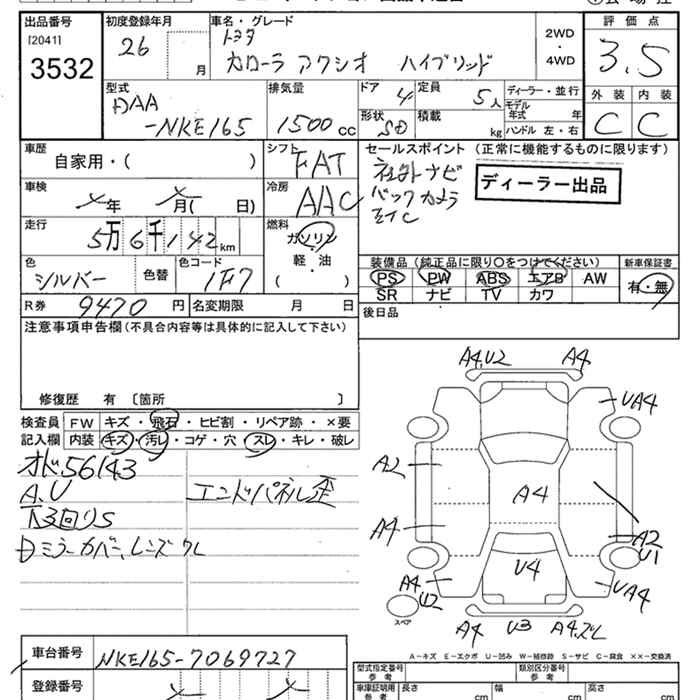 出品番号
[2041]
3532
初度登録年月
26
月
車名・グレード
トヨタ
カローラ アクシオ ハイブリッド
2WD
・
4WD
評価点
3.5
外装 内装
C C
型式
DAA
-NKE165
排気量
1500 cc
ドア 4
定員 5人
形状 SD
積載 kg
ディーラー・並行
モデル年式 年
ハンドル 左・右
車歴
自家用・( )
シフト
FAT
車検
年 月( 日)
冷房
AAC
走行
5万6千142km
燃料
ガソリン
・
軽・油
( )
色
シルバー
色替
色コード
1F7
R券 9470円
名変期限 月 日
セールスポイント (正常に機能するものに限ります)
社外ナビ
バックカメラ
ETC
ディーラー出品
装備品(純正品に限り○をつけてください)
PS PW ABS エアB AW
SR ナビ TV カワ
新車保証書
有・無
後日品
注意事項申告欄(不具合内容等は具体的に記入して下さい)
修復歴 有〔箇所 〕
検査員 FW キズ・飛石・ヒビ割・リペア跡・×要
記入欄 内装 キズ・汚レ・コゲ・穴・スレ・キレ・破レ
オド56143
A、U
エンドパネル歪
下回りS
Dミラーカバー、レンズワレ
A4、U2 A4
UA4
A2
A4
A4
A2
U1
U4
A4
U2
UA4
スペア
A4 U3 A4、ズレ
A-キズ E-エクボ U-凹み W-補修跡 S-サビ C-腐食 ××-交換済
車台番号 NKE165-7069727
登録番号
型式指定番号
参考
類別区分番号
参考
車庫証明用
参考
長さ cm
幅 cm
高さ cm